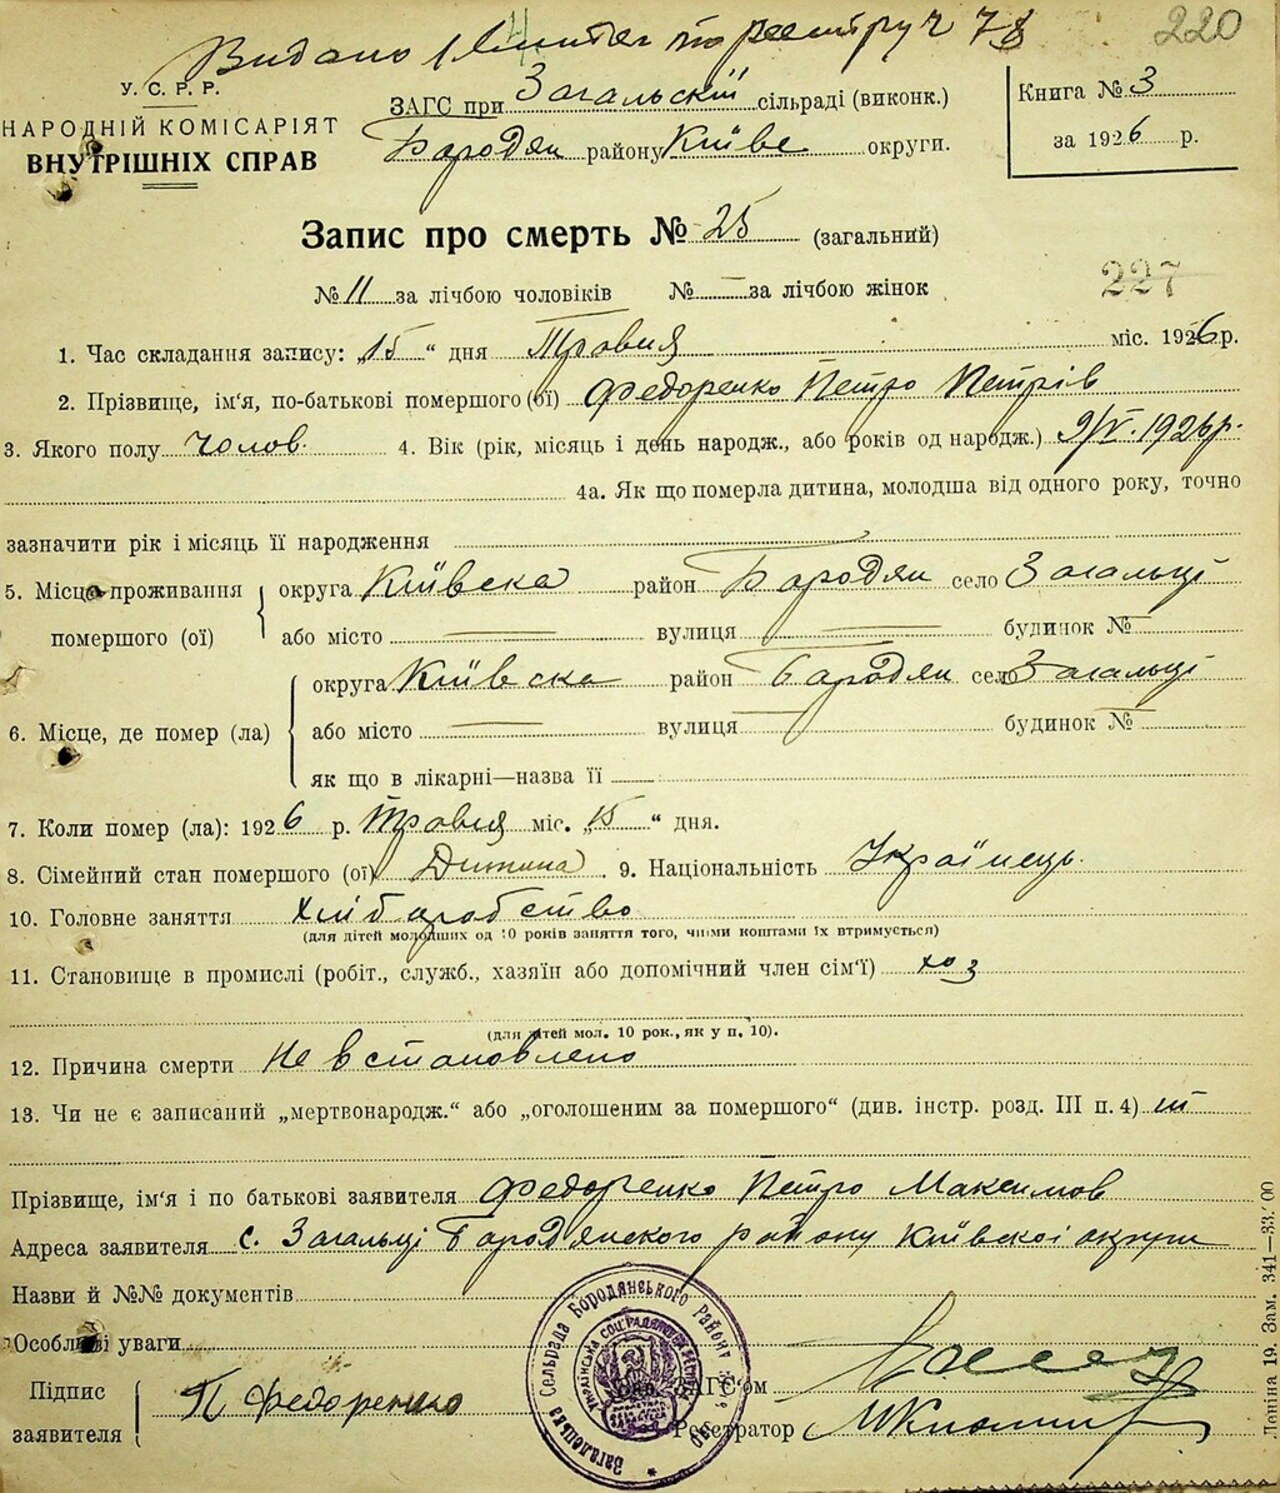 Видано по реєстру ч 78
220
У. С. Р. Р.
НАРОДНІЙ КОМІСАРІЯТ
ВНУТРІШНІХ СПРАВ
ЗАГС при Загальскій сільраді (виконк.)
Бародян району Київс округи.
Книга № 3
за 1926 р.
Запис про смерть № 25 (загальний)
№ 11 за лічбою чоловіків № — за лічбою жінок
227
1. Час складання запису: „15“ дня Травня міс. 1926 р.
2. Прізвище, ім'я, по-батькові помершого (ої) Федоренко Петро Петрів
3. Якого полу чолов. 4. Вік (рік, місяць і день народж., або років од народж.) 9/V. 1926 р.
4а. Як що померла дитина, молодша від одного року, точно
зазначити рік і місяць її народження
5. Місце проживання помершого (ої) округа Київска район Бародян село Загальці
або місто — вулиця — будинок № —
6. Місце, де помер (ла) округа Київска район Бародян село Загальці
або місто — вулиця — будинок № —
як що в лікарні—назва її —
7. Коли помер (ла): 1926 р. Травня міс. „15“ дня.
8. Сімейний стан помершого (ої) Дитина. 9. Національність Українець.
10. Головне заняття хліборобство
(для дітей молодших од 10 років заняття того, чиїми коштами їх втримується)
11. Становище в промислі (робіт., служб., хазяїн або допомічний член сім'ї) хоз
(для дітей мол. 10 рок., як у п. 10).
12. Причина смерти Не встановлено
13. Чи не є записаний „мертвонародж.“ або „оголошеним за помершого“ (див. інстр. розд. III п. 4)
Прізвище, ім'я і по батькові заявителя Федоренко Петро Максимов
Адреса заявителя с. Загальці Бародянского району Київскої округи
Назви й №№ документів
Особливі уваги
Підпис заявителя П Федоренко
Зав. ЗАГС'ом
Реєстратор
Загалецька Сельрада Бородянського Району
Леніна 19. Зам. 341—33.00